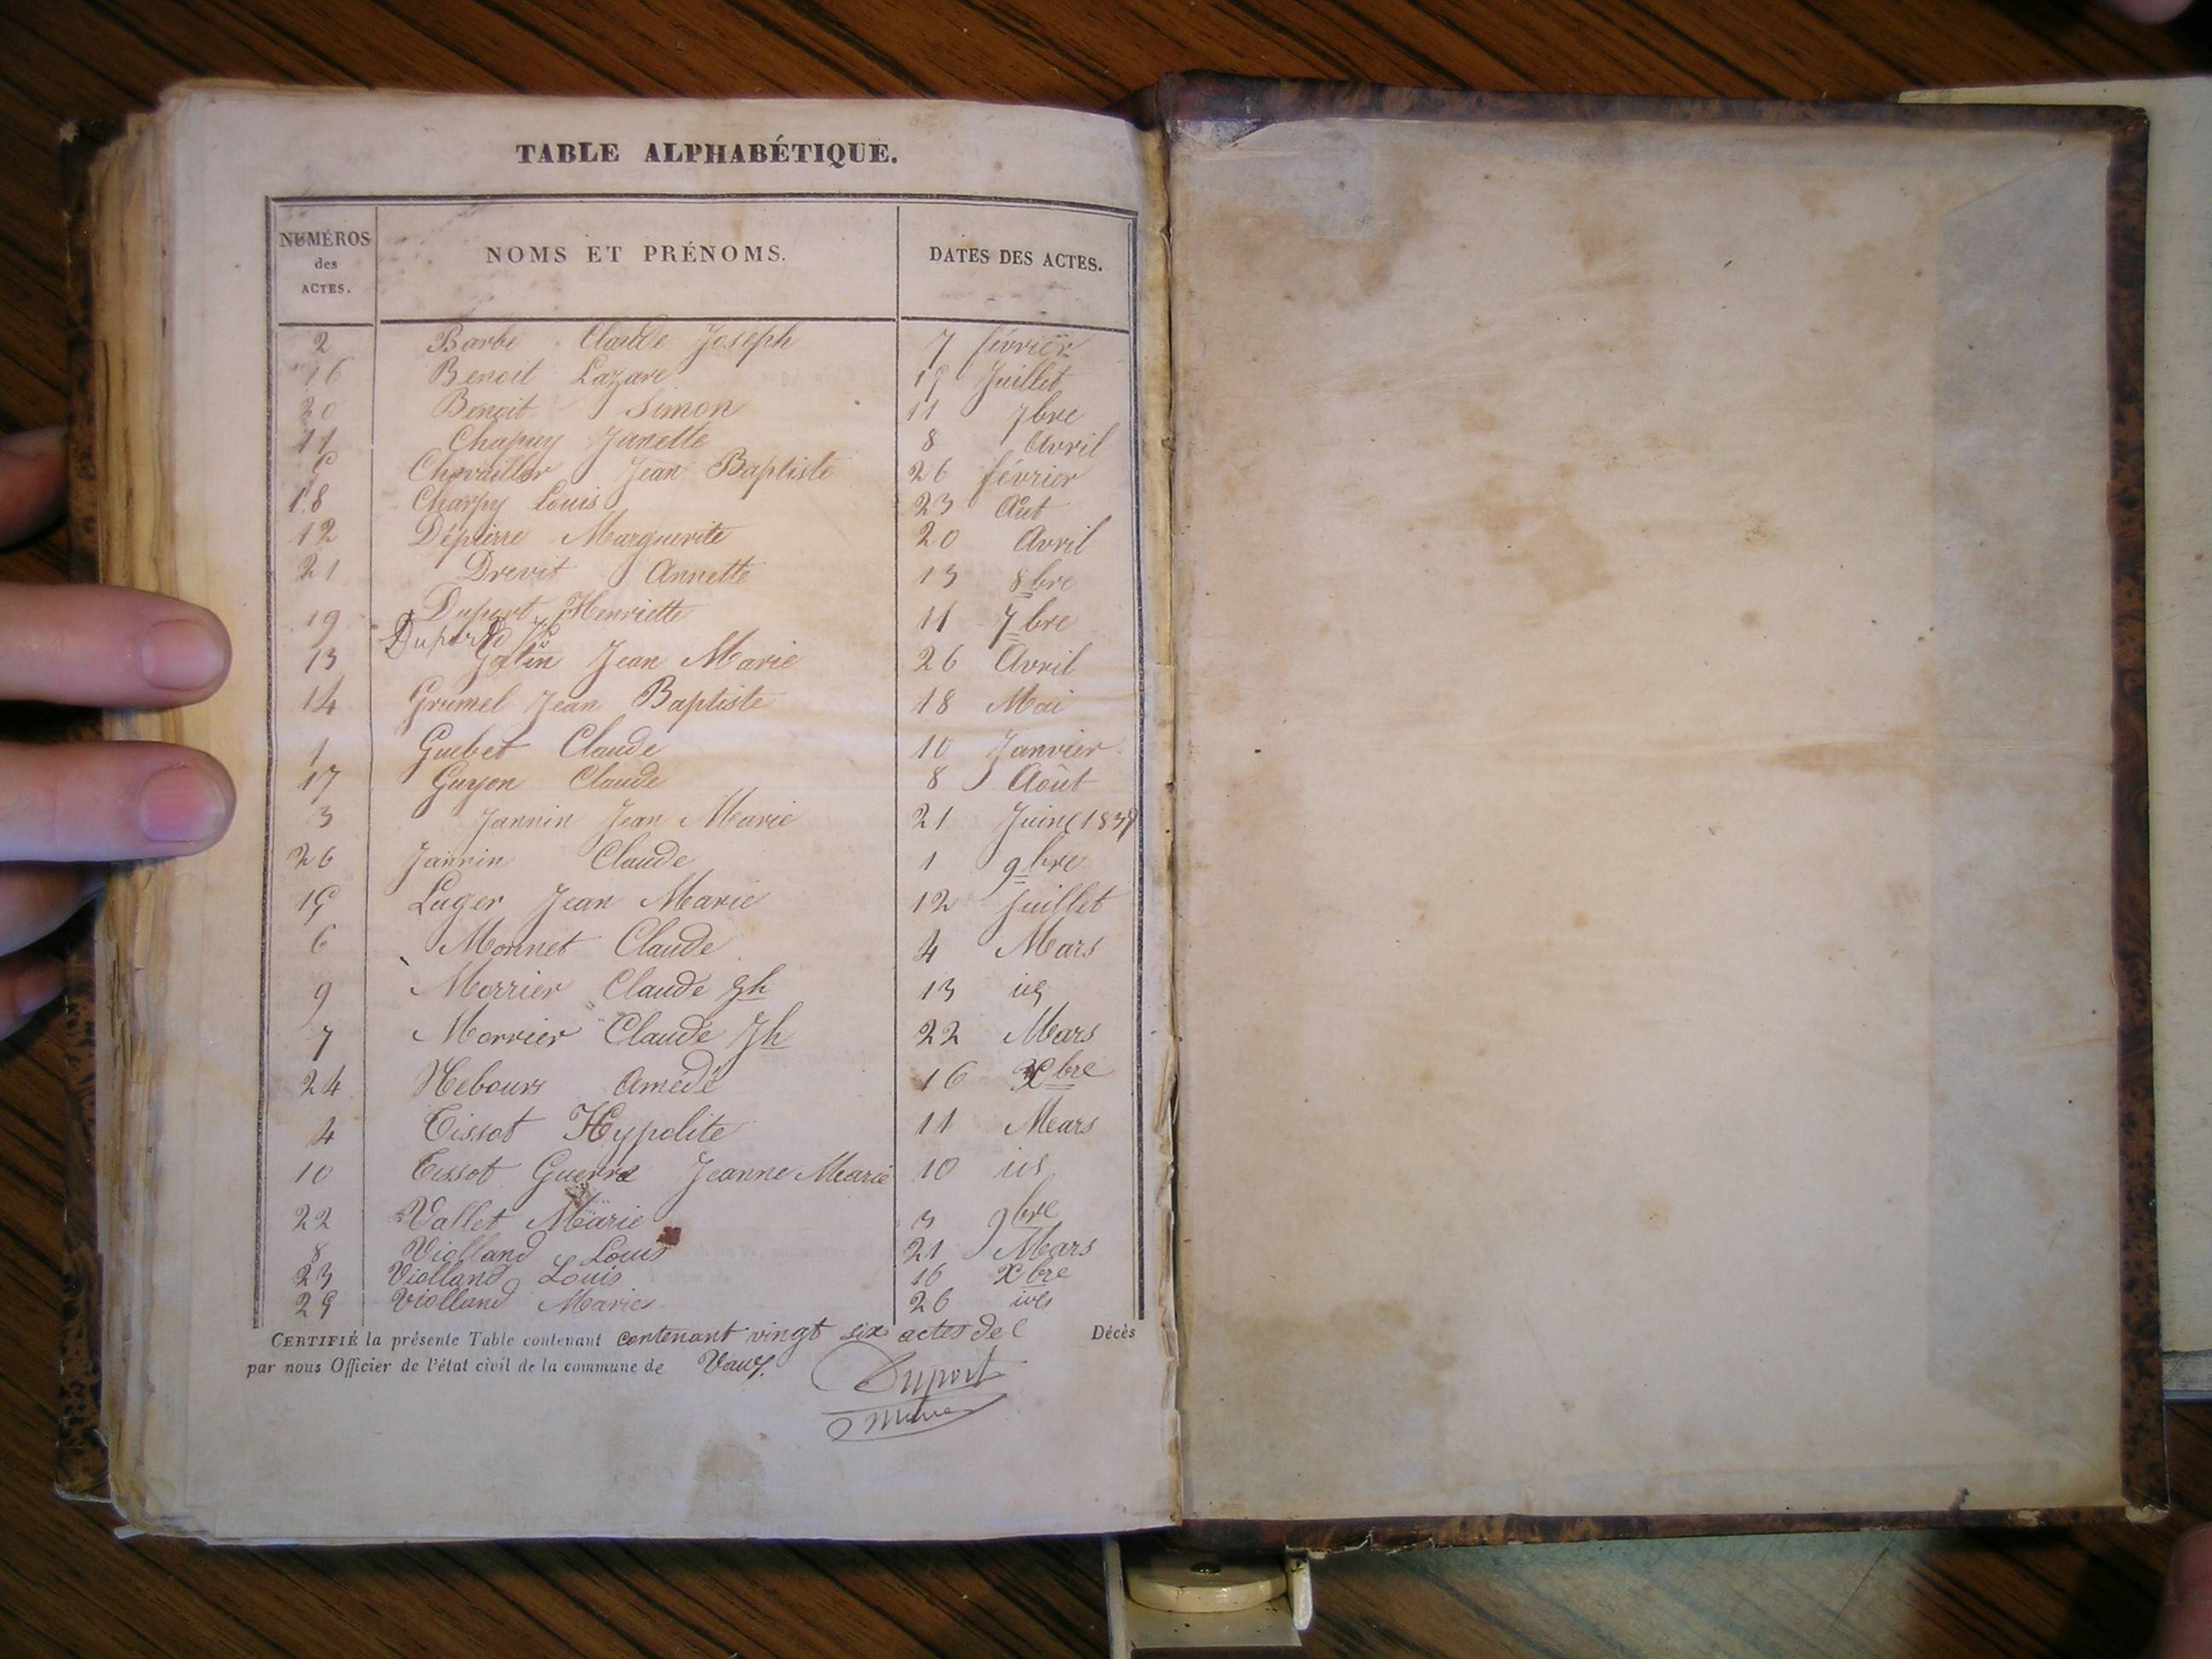 TABLE ALPHABÉTIQUE.
NUMÉROS des ACTES. NOMS ET PRÉNOMS. DATES DES ACTES.
2 Barbe Claude Joseph 7 février
16 Benoit Lazare 15 Juillet
20 Benoit Simon 11 7bre
11 Chapuy Janette 8 Avril
5 Chevailler Jean Baptiste 26 février
18 Charpy Louis 23 Aût
12 Dépierre Marguerite 20 Avril
21 Drevit Annette 13 8bre
19 Duport Henriette 11 7bre
Duport
13 Jean Marie 26 Avril
14 Grumel Jean Baptiste 18 Mai
1 Guebet Claude 10 Janvier
17 Guyon Claude 8 Août
3 Jannin Jean Marie 21 Juin
26 Jannin Claude 1 9bre
15 Luger Jean Marie 12 juillet
6 Monnet Claude 4 Mars
9 Morrier Claude Jh 13
7 Morrier Claude Jh 22 Mars
24 Nebours Amédé 16 Xbre
4 Tissot Hypolite 11 Mars
10 Tissot Guerre Jeanne Marie 10
22 Vallet Marie 3 9bre
8 Violland Louis 21 Mars
23 Violland Louis 16 Xbre
25 Violland Marie 26
CERTIFIÉ la présente Table contenant contenant vingt six actes de Décès
par nous Officier de l'état civil de la commune de Vaux.
Duport
Maire